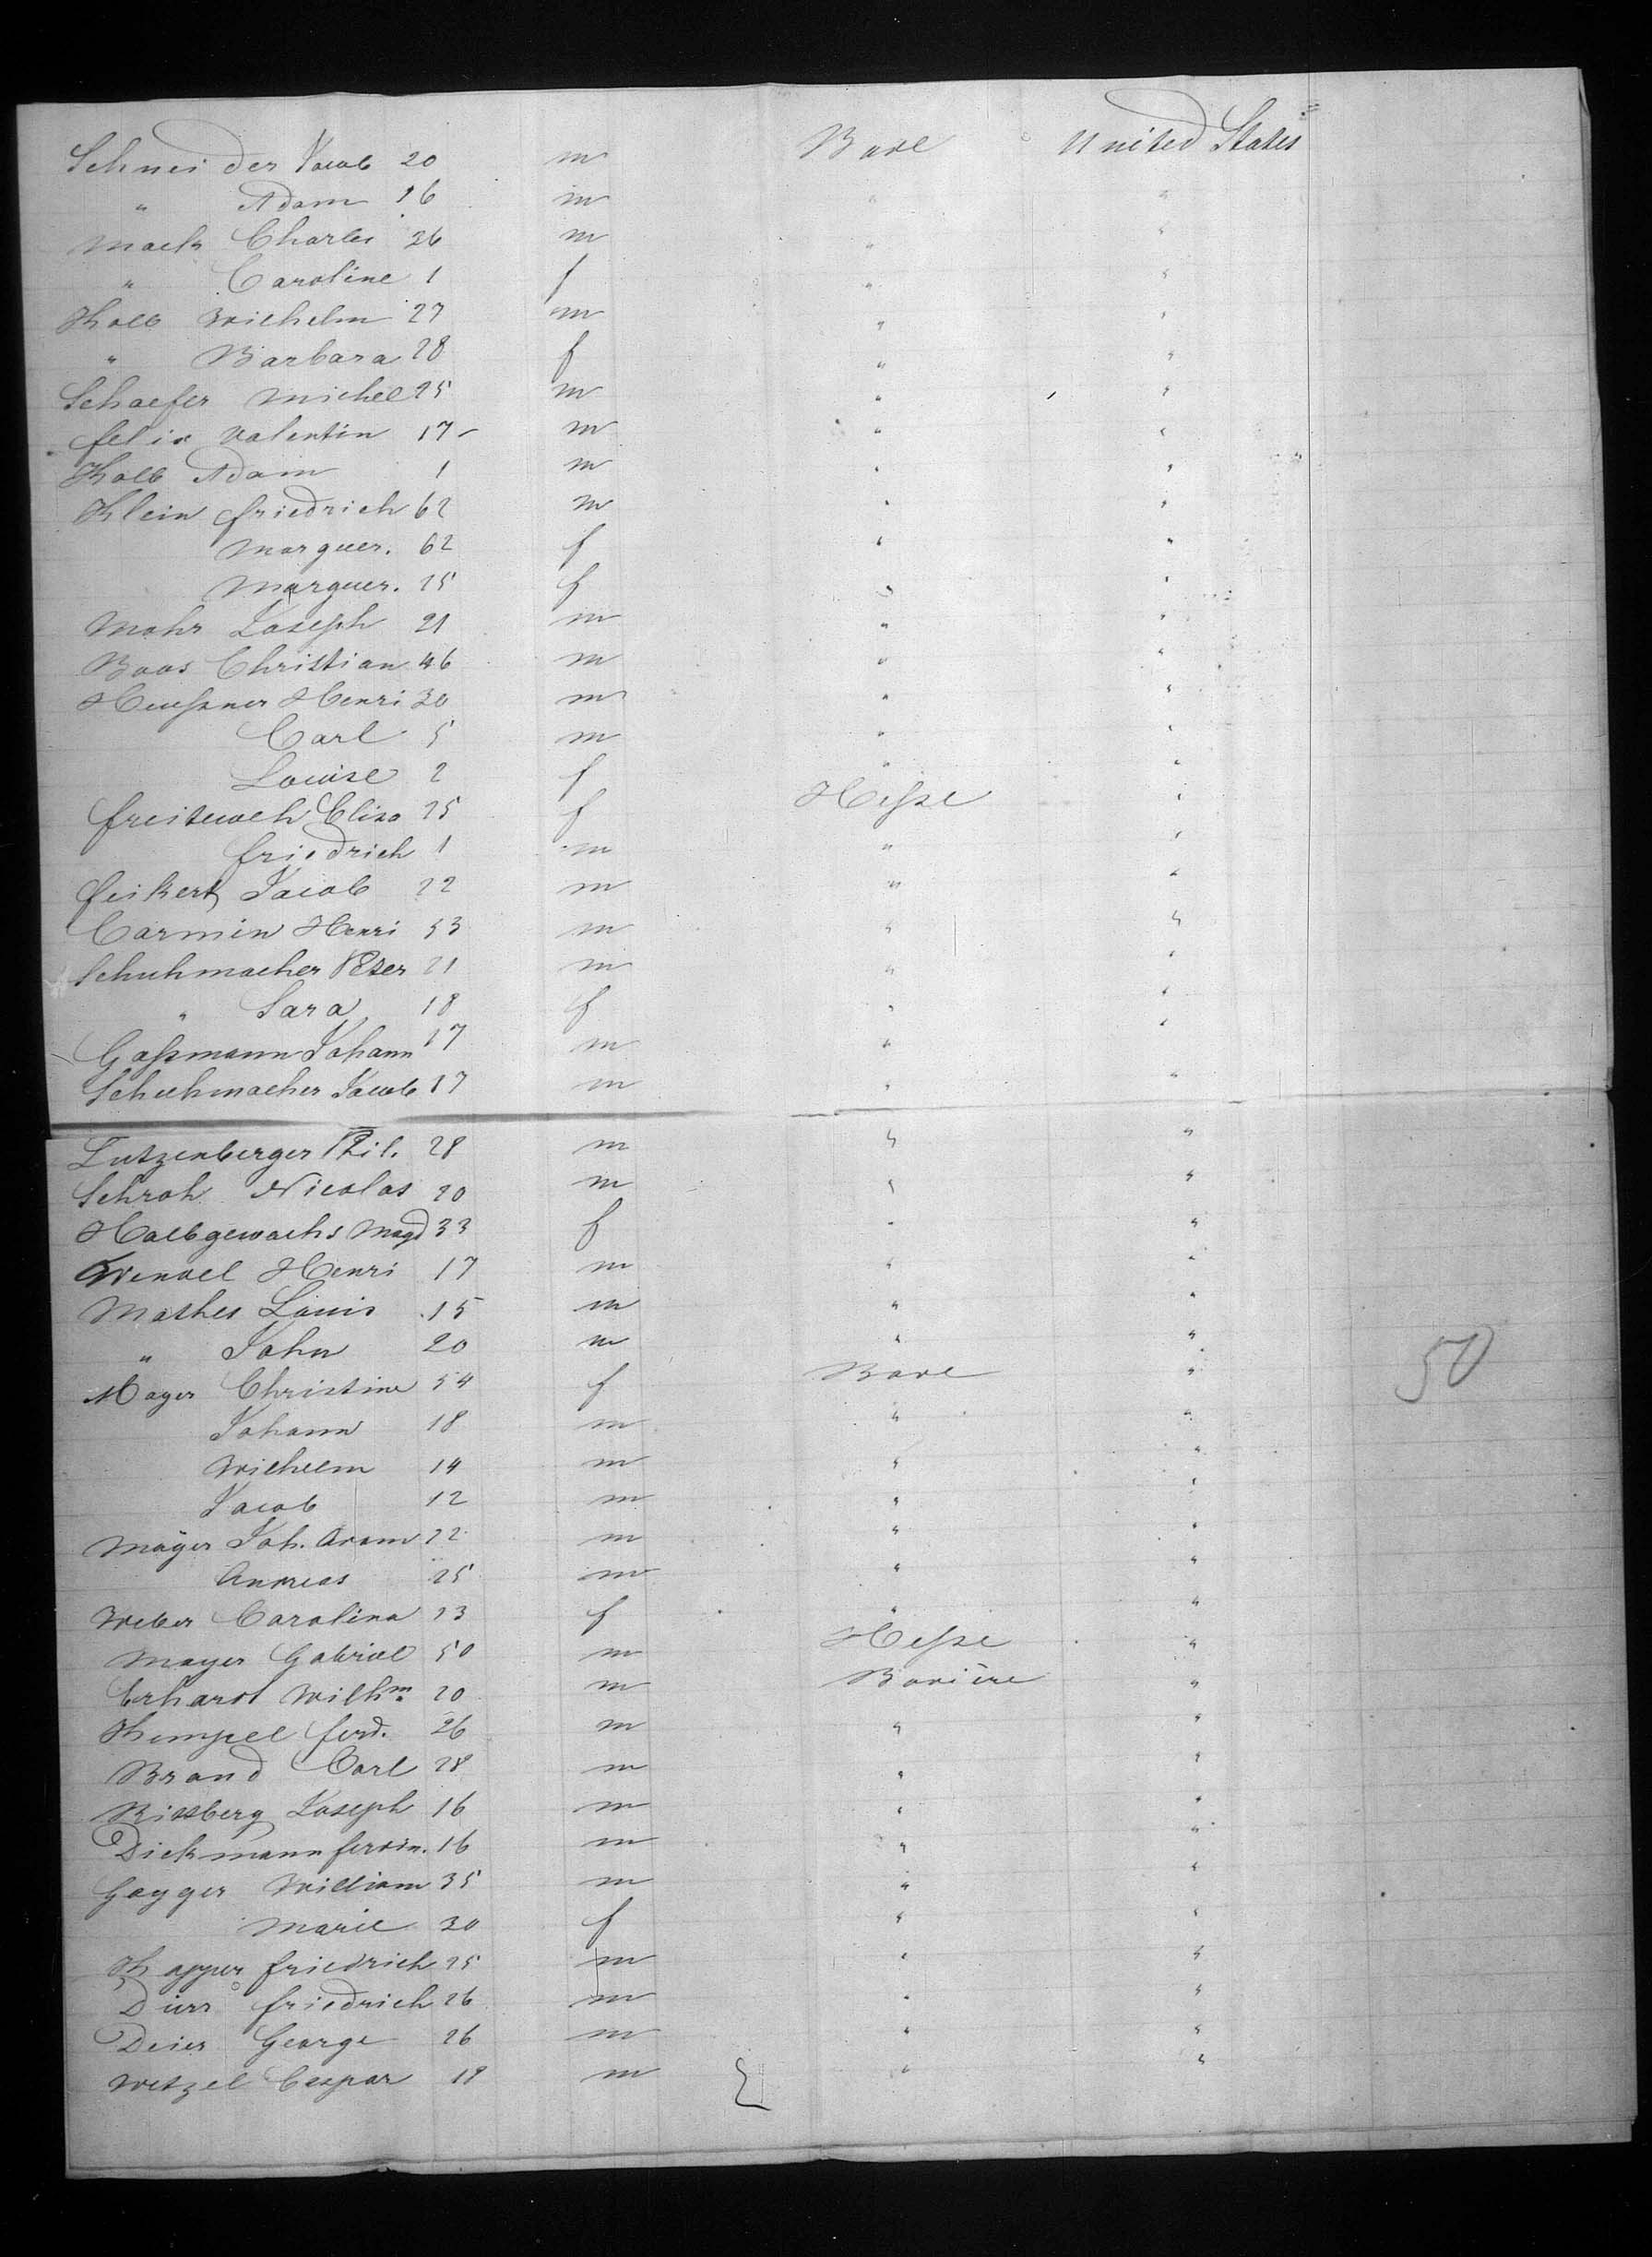 Schneider Jacob 20 m Bade United States
" Adam 16 m " "
Mack Charles 26 m " "
" Caroline 1 f " "
Kolb Wilhelm 27 m " "
" Barbara 28 f " "
Schaefer Michel 25 m " "
Felix Valentin 17 m " "
Kolb Adam 1 m " "
Klein Friedrich 62 m " "
Marguer. 62 f " "
Marguer. 25 f " "
Mohr Joseph 21 m " "
Boos Christian 46 m " "
Heußner Henri 30 m " "
Carl 5 m " "
Louise 2 f " "
Freitweh Elisa 25 f Heßse "
Friedrich 1 m " "
Feikert Jacob 22 m " "
Carmin Henri 53 m " "
Schuhmacher Peter 21 m " "
" Sara 18 f " "
Gaßmann Johann 17 m " "
Schuhmacher Jacob 17 m " "
Lutzenberger Phil. 28 m " "
Schroh Nicolas 20 m " "
Halbgewachs Magd 33 f " "
Wendel Henri 17 m " "
Mathes Louis 15 m " "
" John 20 m " "
Mayer Christine 54 f Bade " 50
Johann 18 m " "
Wilhelm 14 m " "
Jacob 12 m " "
Mayer Joh. Adam 22 m " "
Andreas 25 m " "
Weber Carolina 23 f " "
Mayer Gabriel 50 m Heßse "
Erhardt Wilhm. 20 m Bavière "
Kempel Ferd. 26 m " "
Brand Carl 28 m " "
Joseph 16 m " "
Dickmann Ferdin. 16 m " "
William 35 m " "
Marie 30 f " "
Friedrich 25 m " "
Durr Friedrich 26 m " "
Deier George 26 m " "
Wetzel Caspar 18 m " "